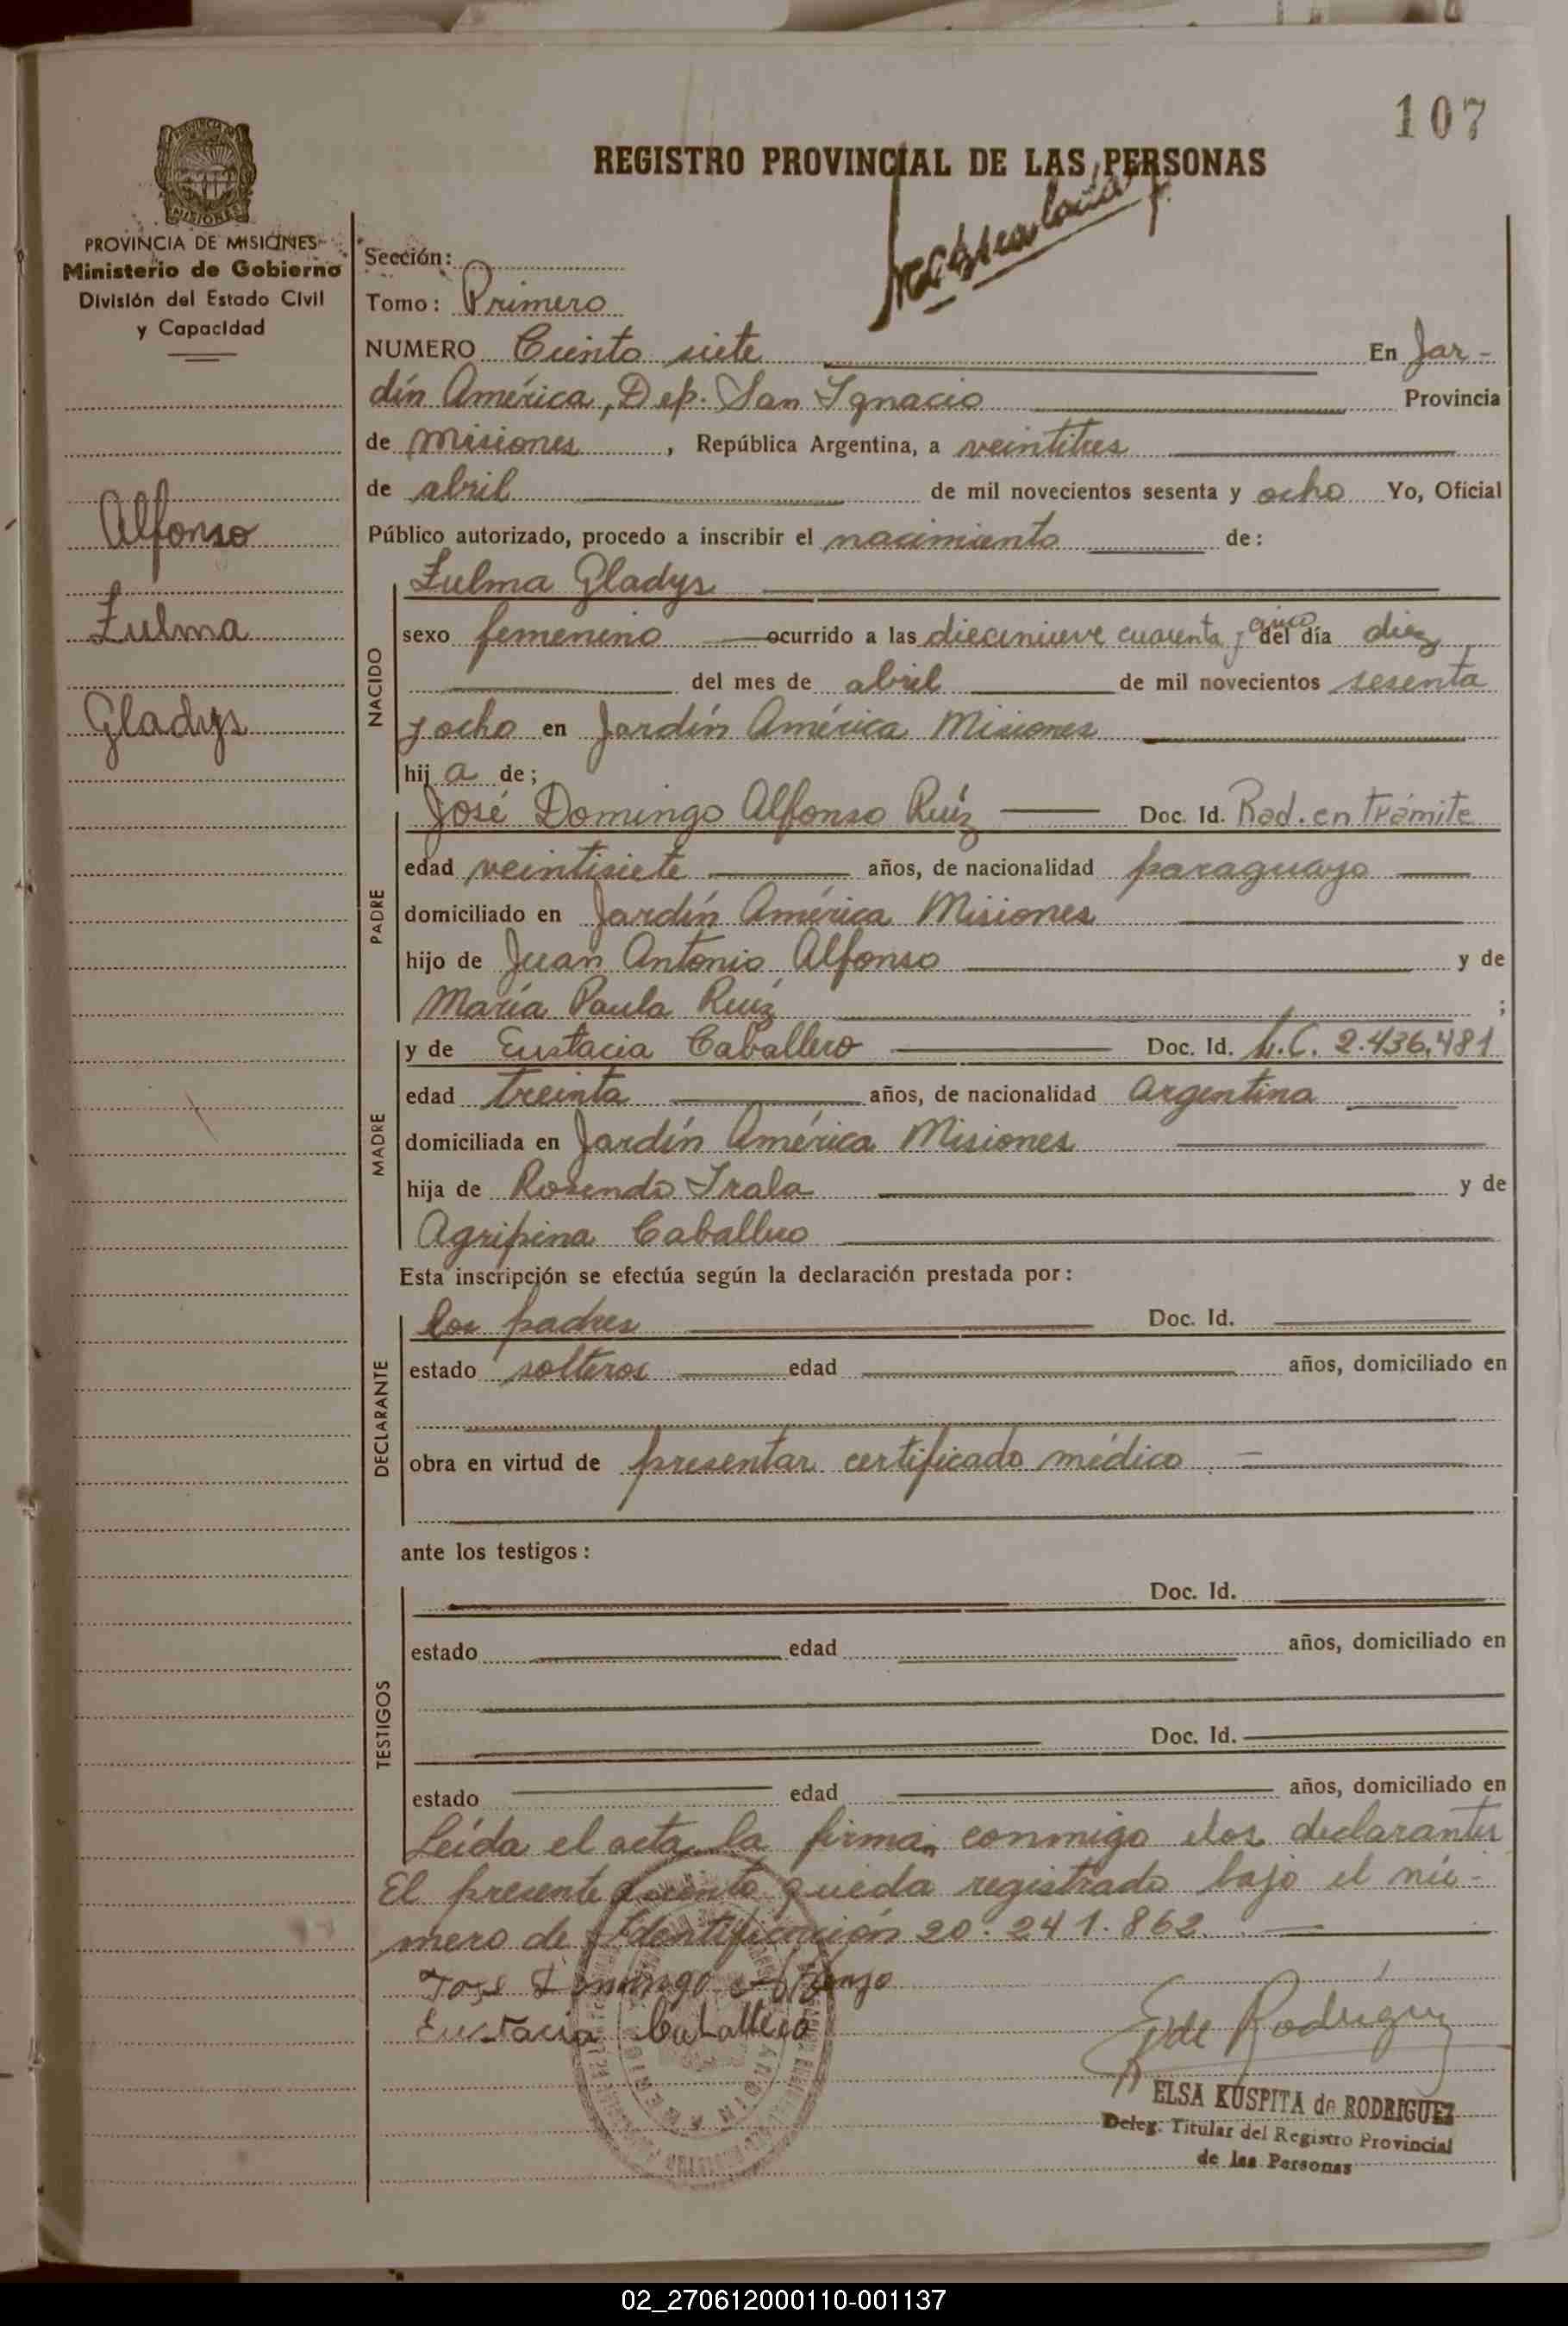 107
REGISTRO PROVINCIAL DE LAS PERSONAS
PROVINCIA DE MISIONES
Ministerio de Gobierno
División del Estado Civil
y Capacidad
Alfonso
Zulma
Gladys
Sección:
Tomo: Primero
NUMERO Ciento siete En Jar-
dín América, Dep. San Ignacio Provincia
de Misiones, República Argentina, a veintitres
de abril de mil novecientos sesenta y ocho Yo, Oficial
Público autorizado, procedo a inscribir el nacimiento de:
NACIDO
Zulma Gladys
sexo femenino ocurrido a las diecinueve cuarenta y cinco del día diez
del mes de abril de mil novecientos sesenta
y ocho en Jardín América Misiones
hij a de;
PADRE
José Domingo Alfonso Ruíz Doc. Id. Rad. en Trámite
edad veintisiete años, de nacionalidad paraguayo
domiciliado en Jardín América Misiones
hijo de Juan Antonio Alfonso y de
María Paula Ruíz ;
MADRE
y de Eustacia Caballero Doc. Id. L.C. 2.436.481
edad treinta años, de nacionalidad Argentina
domiciliada en Jardín América Misiones
hija de Rosendo Irala y de
Agripina Caballero
Esta inscripción se efectúa según la declaración prestada por:
DECLARANTE
los padres Doc. Id.
estado solteros edad años, domiciliado en
obra en virtud de presentar certificado médico
ante los testigos:
TESTIGOS
Doc. Id.
estado edad años, domiciliado en
Doc. Id.
estado edad años, domiciliado en
Leída el acta la firman conmigo los declarantes
El presente asiento queda registrado bajo el nú-
mero de Identificación 20.241.862.
Jose Domingo Alfonso
Eustacia Caballero
E de Rodriguez
ELSA KUSPITA de RODRIGUEZ
Deleg. Titular del Registro Provincial
de las Personas
02_270612000110-001137